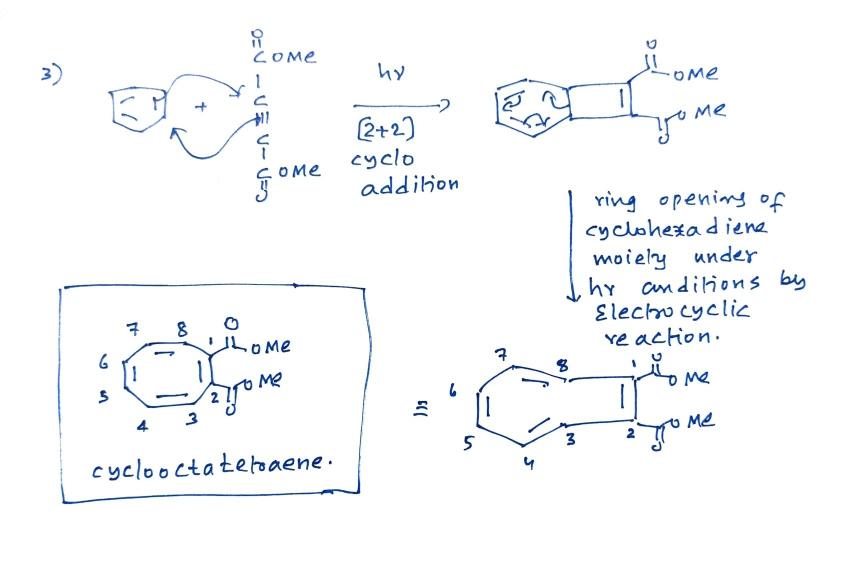 3)
O
C OMe
C
+
C
C OMe
O
hν
[2+2]
cyclo
addition
O
OMe
O Me
O
ring opening of
cyclohexadiene
moiety under
hν conditions by
Electrocyclic
reaction.
7 8 O
1
OMe
6
5
O Me
2
O
4 3
cyclooctatetraene.
≡
7 8 1 O
O Me
6
5
O Me
3 2
O
4